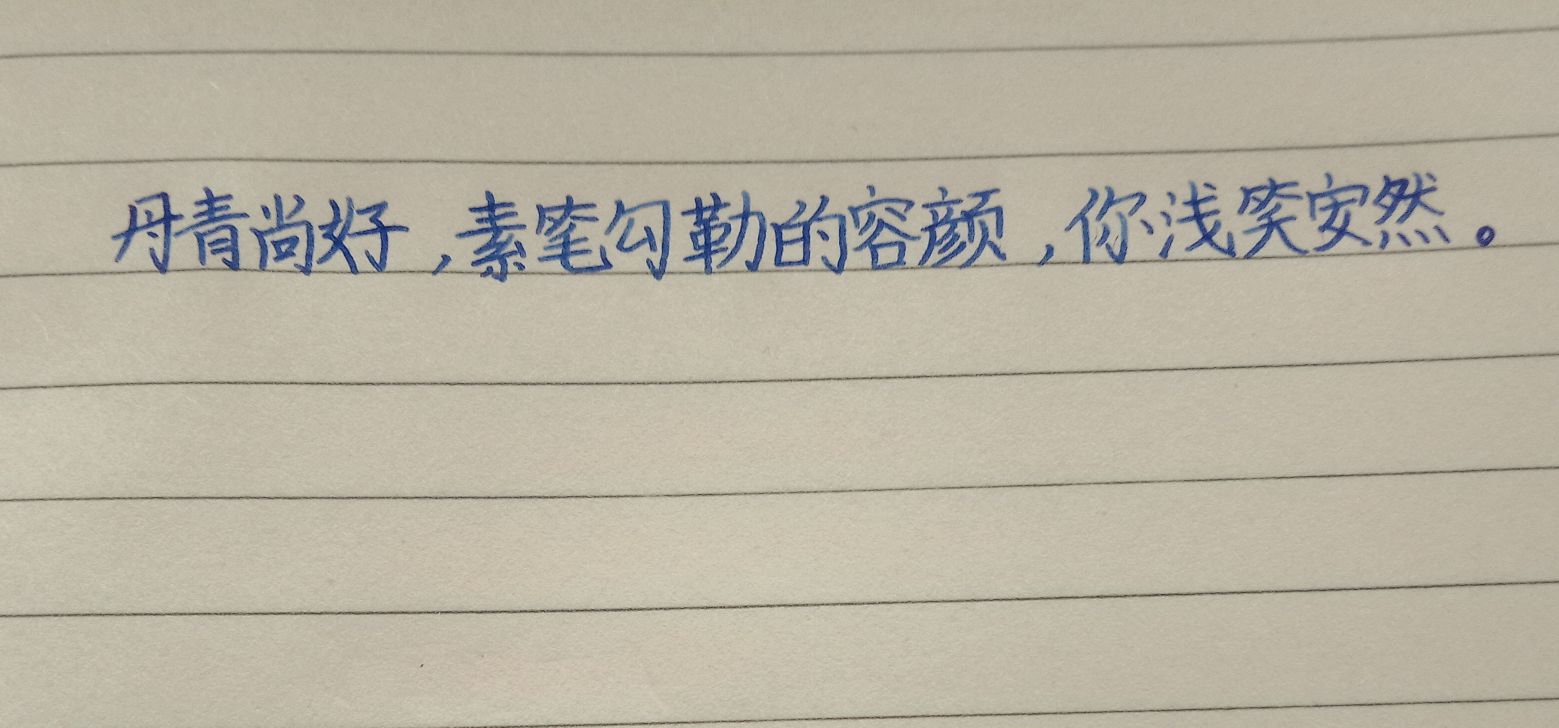 丹青尚好，素笔勾勒的容颜，你浅笑安然。